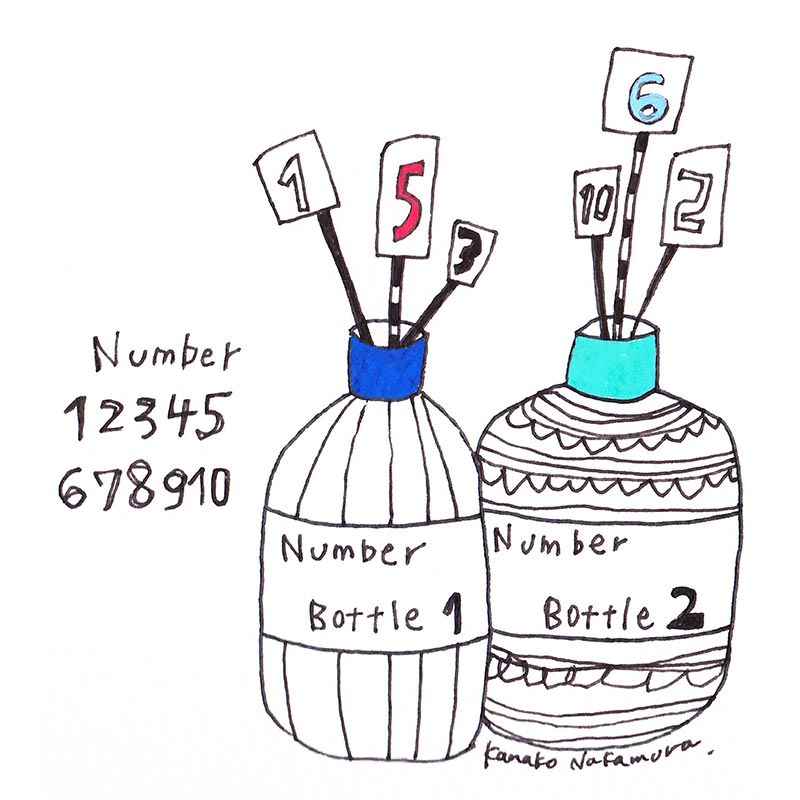 6
1
5
3
10
2
Number
12345
678910
Number
Bottle 1
Number
Bottle 2
Kanako Nakamura.